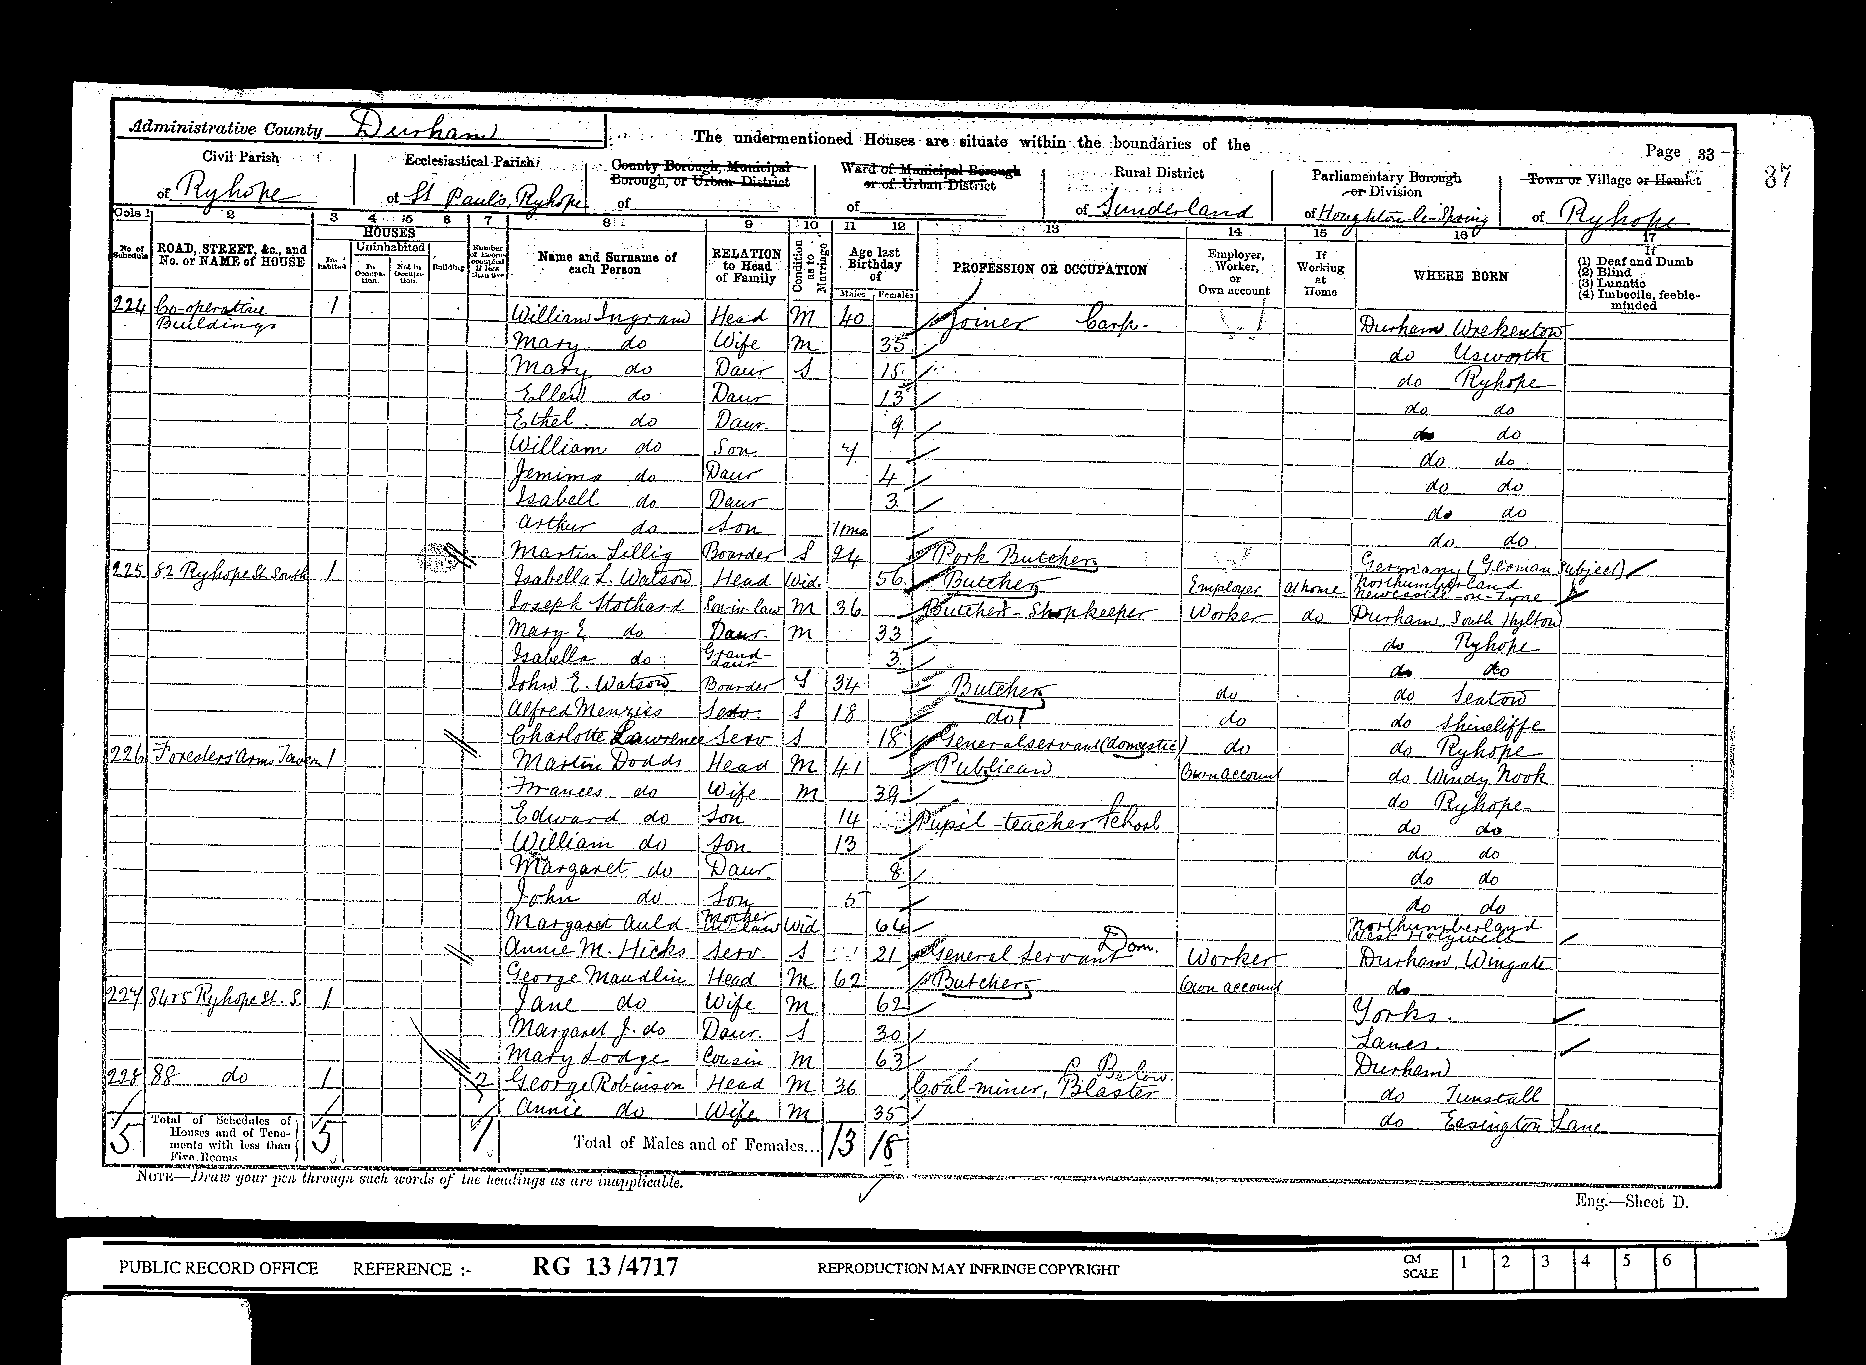 Administrative County Durham
The undermentioned Houses are situate within the boundaries of the
Page 33
37
Civil Parish
of Ryhope
Ecclesiastical Parish
of St Pauls, Ryhope
County Borough, Municipal
Borough, or Urban District
of
Ward of Municipal Borough
or of Urban District
of
Rural District
of Sunderland
Parliamentary Borough
or Division
of Houghton-le-Spring
Town or Village or Hamlet
of Ryhope
Cols 1 2 3 4 5 6 7 8 9 10 11 12 13 14 15 16 17
No. of Schedule
ROAD, STREET, &c., and No. or NAME of HOUSE
HOUSES
Inhabited
Uninhabited
In Occupation.
Not in Occupation.
Building
Name and Surname of each Person
RELATION to Head of Family
Condition as to Marriage
Age last Birthday of
Males Females
PROFESSION OR OCCUPATION
Employer, Worker, or Own account
If Working at Home
WHERE BORN
If
(1) Deaf and Dumb
(2) Blind
(3) Lunatic
(4) Imbecile, feeble-minded
224 Co-operative Buildings 1 William Ingram Head M 40 Joiner Carp. Durham Wrekenton
Mary do Wife M 35 do Usworth
Mary do Daur S 15 do Ryhope
Ellen do Daur 13 do do
Ethel do Daur 9 do do
William do Son 7 do do
Jemima do Daur 4 do do
Isabell do Daur 3 do do
Arthur do Son 1mo do do
Martin Lillig Boarder S 24 Pork Butcher Germany (German Subject)
225 82 Ryhope St South 1 Isabella L. Watson Head Wid. 56 Butcher Employer at home Northumberland Newcastle-on-Tyne
Joseph Stothard Son-in-law M 36 Butcher-Shopkeeper Worker do Durham, South Hylton
Mary E do Daur M 33 do Ryhope
Isabella do Grand-daur 3 do do
John E. Watson Boarder S 34 Butcher do do Seaton
Alfred Menzies Serv. S 18 do do do Shincliffe
Charlotte Lawrence Serv S 18 General servant (domestic) do do Ryhope
226 Foresters Arms Tavern 1 Martin Dodds Head M 41 Publican Own account do Windy Nook
Frances do Wife M 39 do Ryhope
Edward do Son 14 Pupil teacher School do do
William do Son 13 do do
Margaret do Daur 8 do do
John do Son 5 do do
Margaret Auld Mother in law Wid 64 Northumberland West Holywell
Annie M. Hicks Serv S 21 General Servant Dom. Worker Durham, Wingate
George Maudlin Head M 62 Butcher Own account do
227 84 & 5 Ryhope St. S. 1 Jane do Wife M 62 Yorks.
Margaret J. do Daur. S 30 Lancs.
Mary Lodge Cousin M 63 Durham
228 88 do 1 2 George Robinson Head M 36 Coal-miner, Blaster Below do Tunstall
Annie do Wife M 35 do Easington Lane
5 Total of Schedules of Houses and of Tenements with less than Five Rooms 5 1 Total of Males and of Females... 13 18
NOTE—Draw your pen through such words of the headings as are inapplicable.
Eng.—Sheet D.
PUBLIC RECORD OFFICE REFERENCE :- RG 13/4717 REPRODUCTION MAY INFRINGE COPYRIGHT CM SCALE 1 2 3 4 5 6